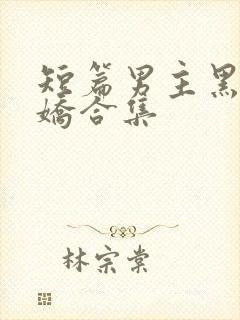 短篇男主黑
嬌合集
林宗棠